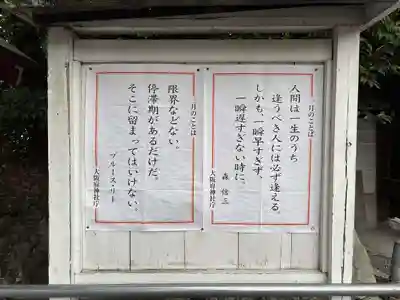 一月のことば
人間は一生のうち
逢うべき人には必ず逢える。
しかも、一瞬早すぎず、
一瞬遅すぎない時に。
森 信三
大阪府神社庁
二月のことば
限界などない。
停滞期があるだけだ。
そこに留まってはいけない。
ブルース・リー
大阪府神社庁